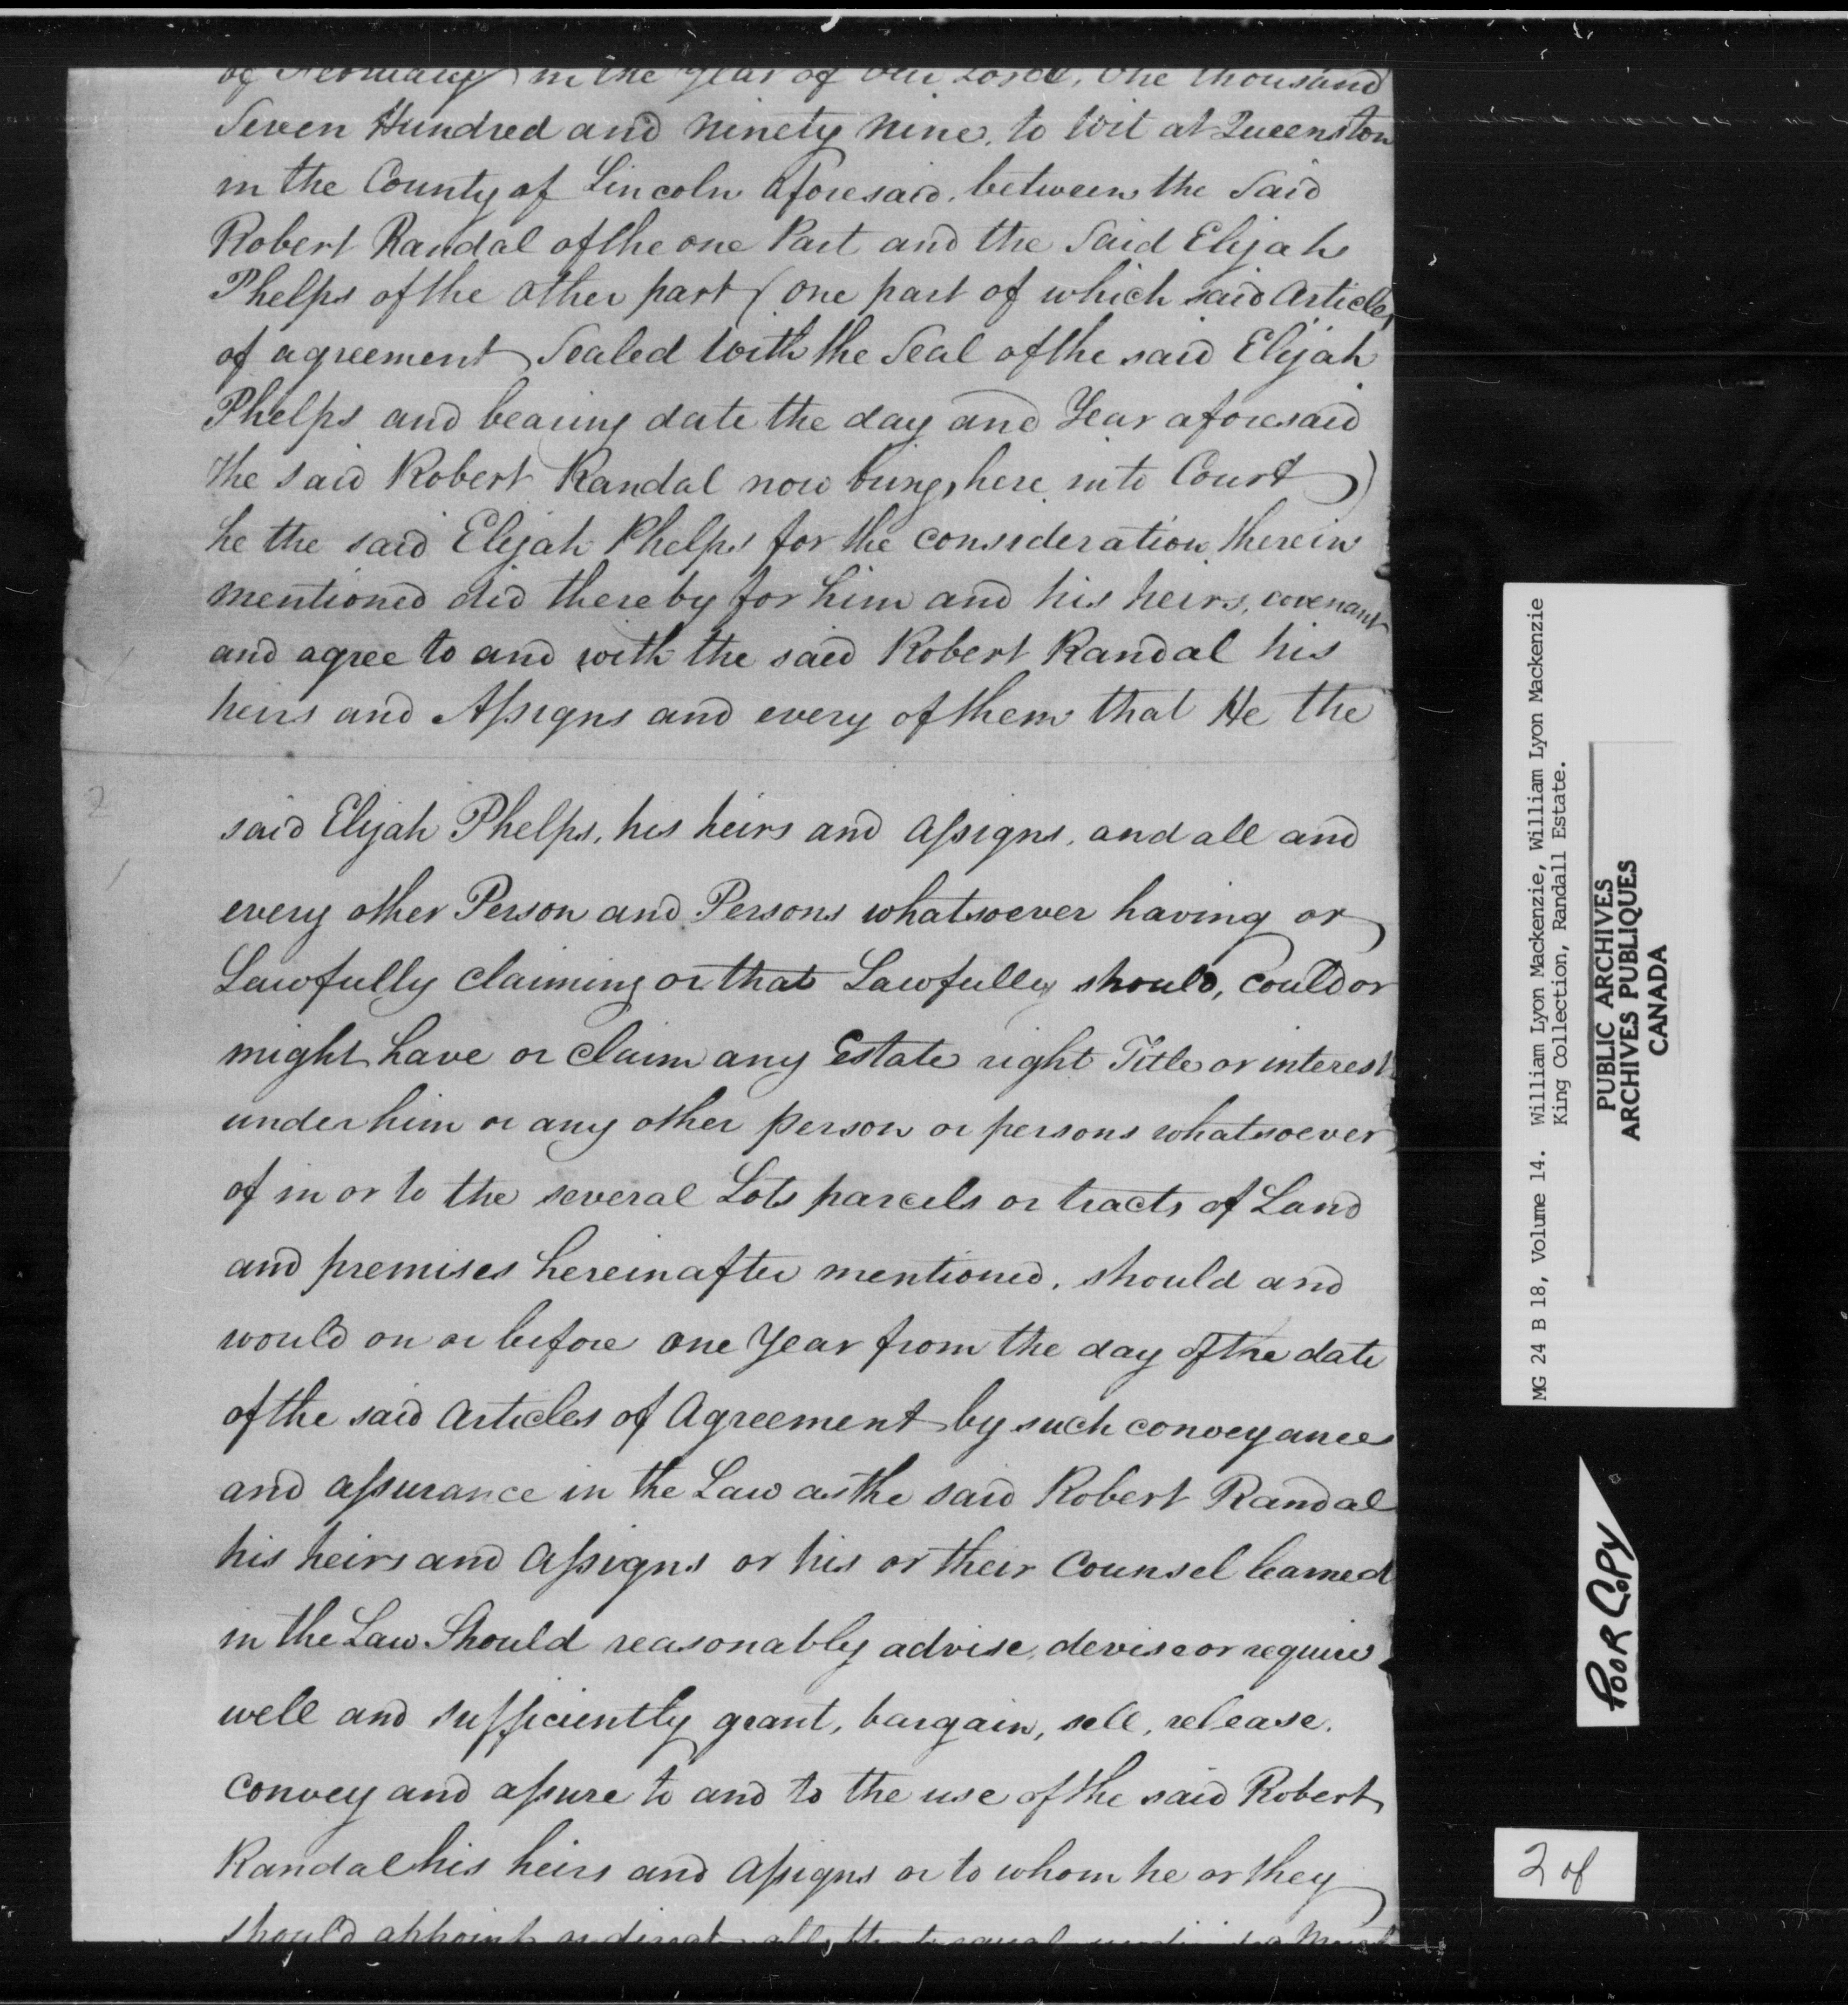 of February in the year of our Lord, One thousand
Seven Hundred and ninety nine, to wit at Queenston
in the County of Lincoln aforesaid, between the Said
Robert Randal of the one Part and the Said Elijah
Phelps of the other part (one part of which said Articles
of agreement Sealed with the Seal of the said Elijah
Phelps and bearing date the day and Year aforesaid
the said Robert Randal now brings here into Court)
he the said Elijah Phelps for the consideration therein
mentioned did thereby for him and his heirs, covenant
and agree to and with the said Robert Randal his
heirs and Assigns and every of them that He the
2
said Elijah Phelps, his heirs and assigns, and all and
every other Person and Persons whatsoever having or
Lawfully claiming or that Lawfully should, could or
might have or claim any Estate right Title or interest
under him or any other person or persons whatsoever
of in or to the several Lots parcels or tracts of Land
and premises hereinafter mentioned, should and
would on or before one Year from the day of the date
of the said Articles of Agreement by such conveyance
and assurance in the Law as the said Robert Randal
his heirs and Assigns or his or their Counsel learned
in the Law Should reasonably advise, devise or require
well and sufficiently grant, bargain, sell, release,
convey and assure to and to the use of the said Robert
Randal his heirs and assigns or to whom he or they
should appoint or direct all
MG 24 B 18, Volume 14. William Lyon Mackenzie, William Lyon Mackenzie
King Collection, Randall Estate.
PUBLIC ARCHIVES
ARCHIVES PUBLIQUES
CANADA
POOR COPY
2 of